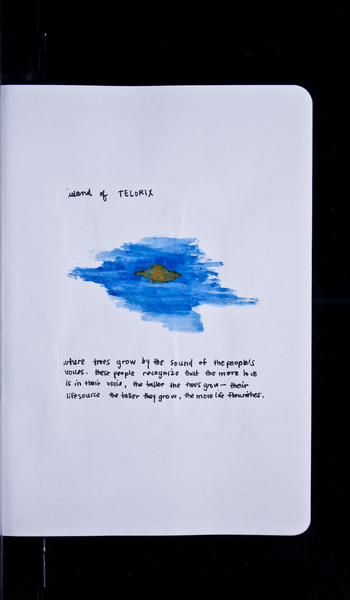 island of TELORIX
where trees grow by the sound of the people's
voices. these people recognize that the more love
is in their voice, the taller the trees grow — their
lifesource. the taller they grow, the more life flourishes.